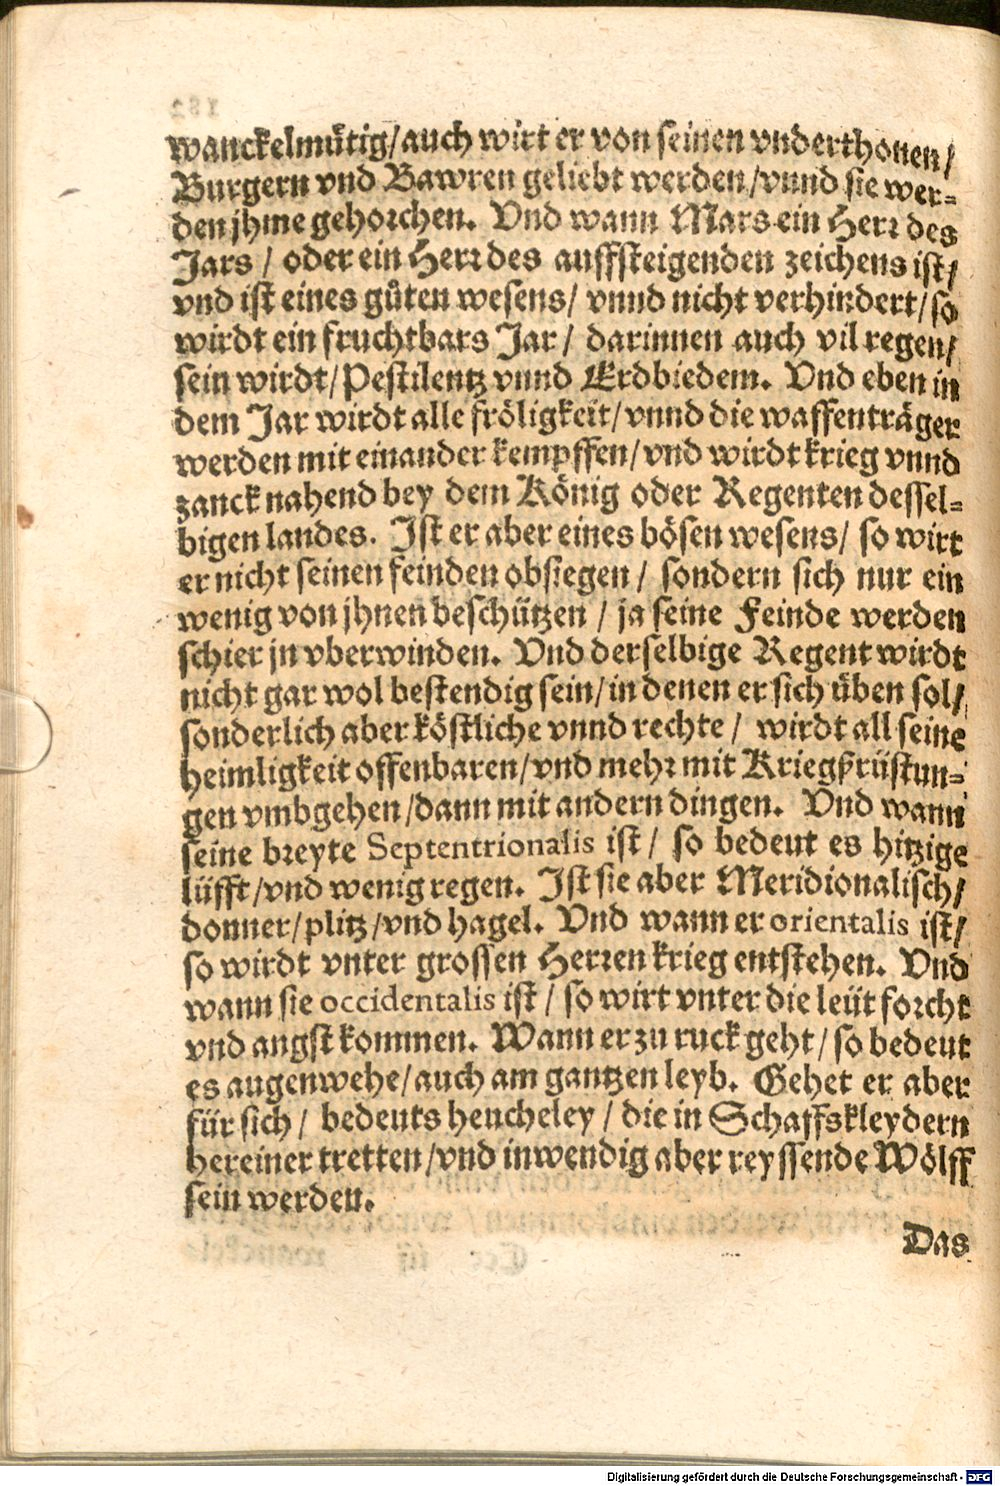 wanckelmütig/auch wirt er von seinen vnderthonen/
Burgern vnd Bawren geliebt werden/vnnd sie wer-
den jhme gehorchen. Vnd wann Mars ein Herr des
Jars / oder ein Herr des auffsteigenden zeichens ist/
vnd ist eines gůten wesens/ vnnd nicht verhindert/so
wirdt ein fruchtbars Jar / darinnen auch vil regen/
sein wirdt/Pestilentz vnnd Erdbiedem. Vnd eben in
dem Jar wirdt alle fröligkeit/vnnd die waffenträger
werden mit einander kempffen/vnd wirdt krieg vnnd
zanck nahend bey dem König oder Regenten dessel-
bigen landes. Ist er aber eines bösen wesens/ so wirt
er nicht seinen feinden obsiegen / sondern sich nur ein
wenig von jhnen beschützen / ja seine Feinde werden
schier jn vberwinden. Vnd derselbige Regent wirdt
nicht gar wol bestendig sein/in denen er sich üben sol/
sonderlich aber köstliche vnnd rechte / wirdt all seine
heimligkeit offenbaren/vnd mehr mit Kriegßrüstun-
gen vmbgehen/dann mit andern dingen. Vnd wann
seine breyte Septentrionalis ist / so bedeut es hitzige
lüfft/vnd wenig regen. Ist sie aber Meridionalisch/
donner/plitz/vnd hagel. Vnd wann er orientalis ist/
so wirdt vnter grossen Herren krieg entstehen. Vnd
wann sie occidentalis ist / so wirt vnter die leüt forcht
vnd angst kommen. Wann er zu ruck geht/so bedeut
es augenwehe/auch am gantzen leyb. Gehet er aber
für sich / bedeuts heucheley / die in Schaffskleydern
hereiner tretten/vnd inwendig aber reyssende Wölff
sein werden.
Das
Digitalisierung gefördert durch die Deutsche Forschungsgemeinschaft - DFG